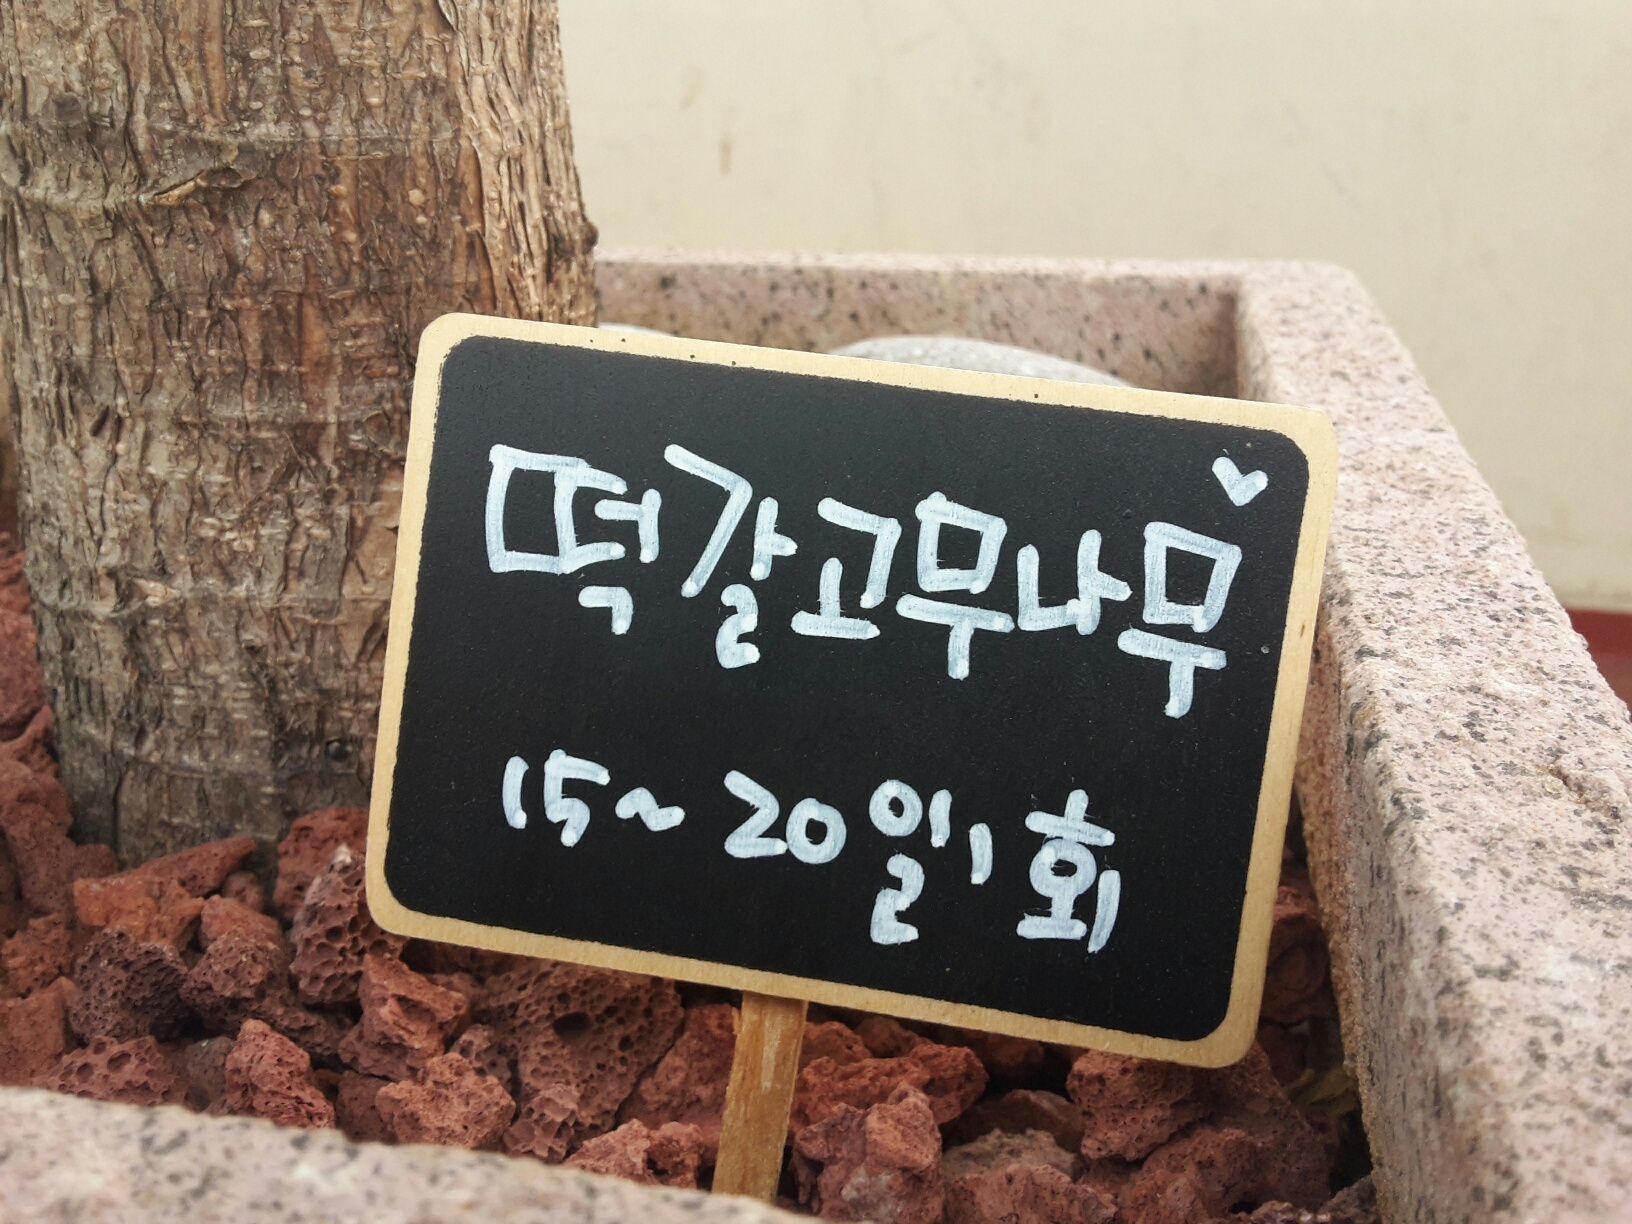 떡갈고무나무
15~20일1회